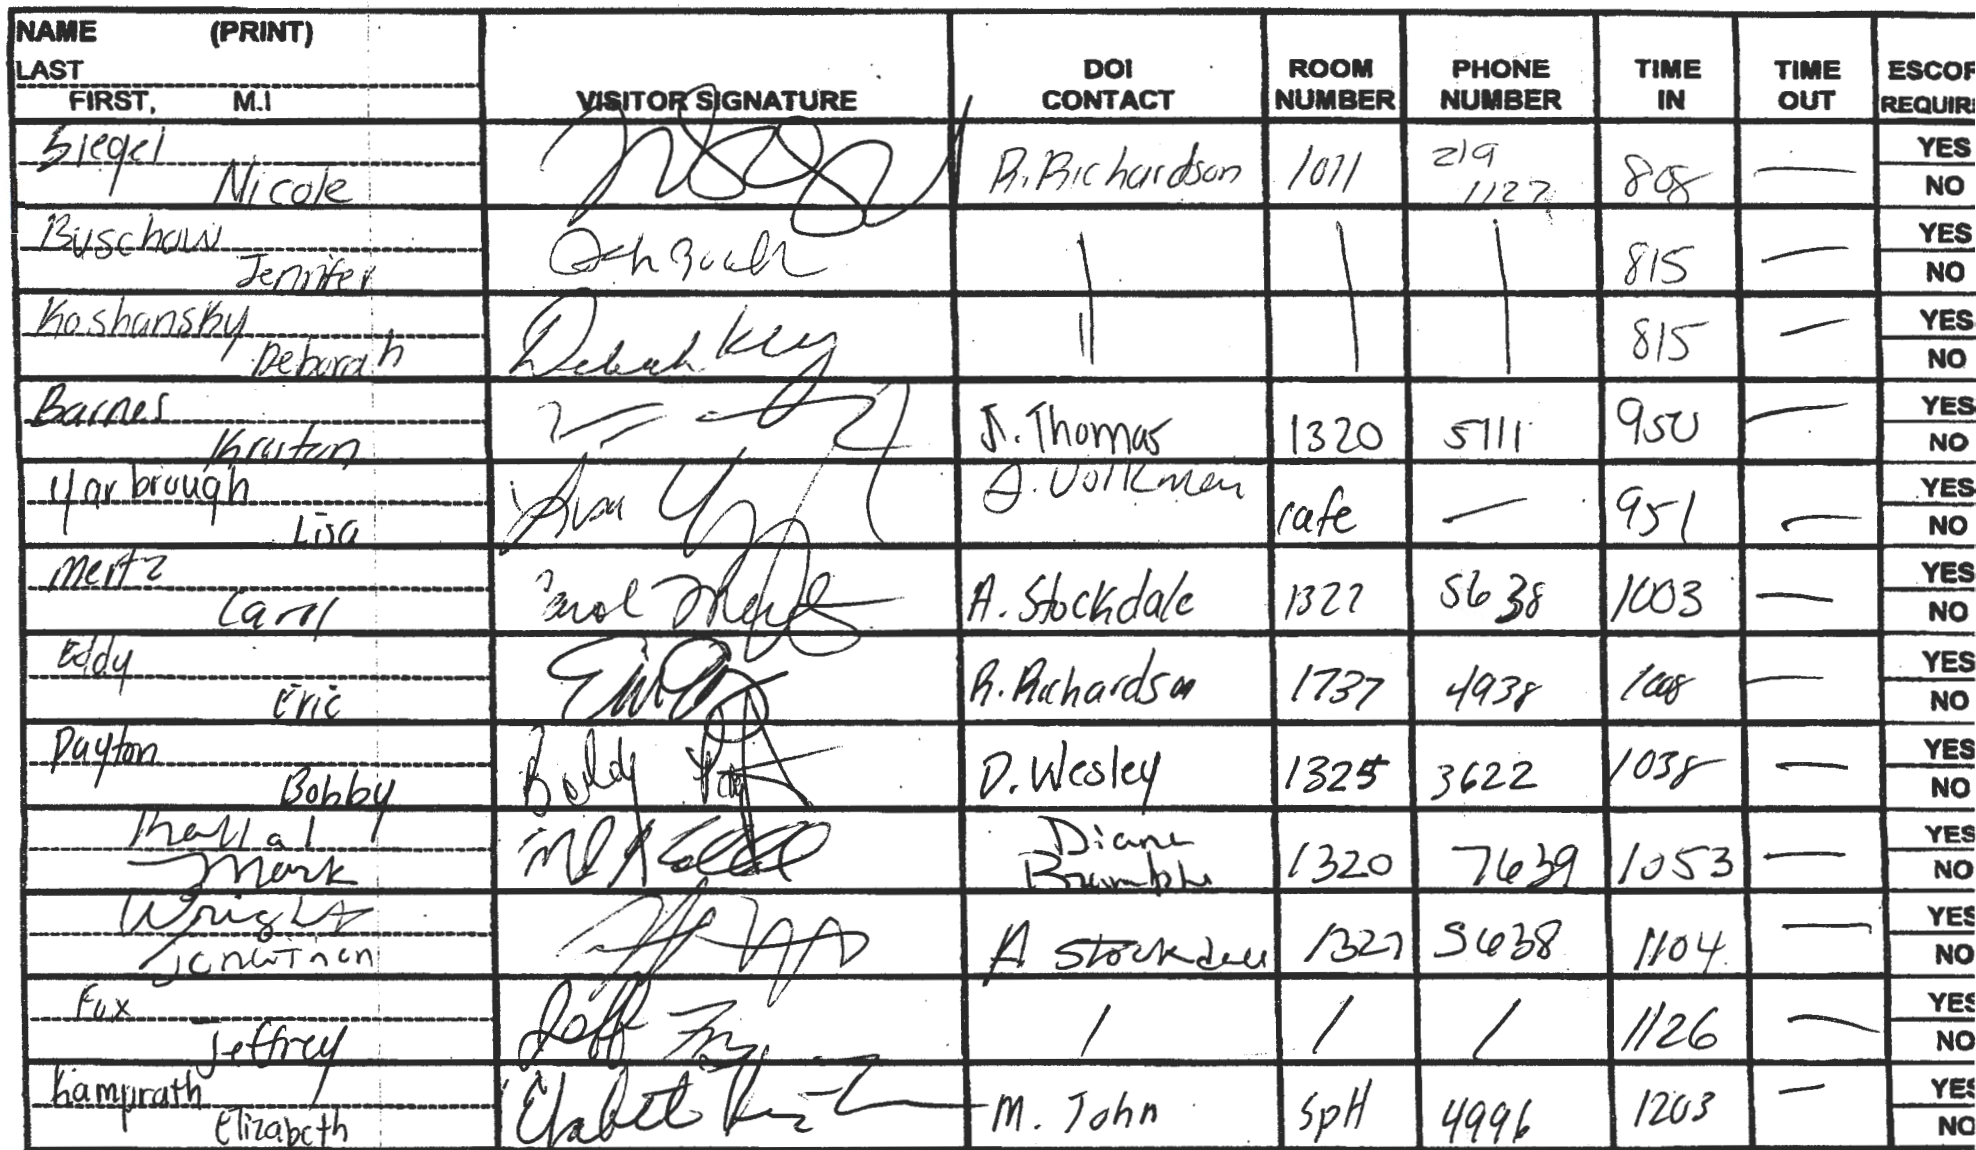 NAME (PRINT)
LAST
FIRST, M.I
VISITOR SIGNATURE
DOI CONTACT
ROOM NUMBER
PHONE NUMBER
TIME IN
TIME OUT
ESCOR
REQUIRE
Siegel
Nicole
R. Richardson 1011 219 1127 808 — YES
NO
Buschow
Jennifer
| | | 815 — YES
NO
Koshansky
Deborah
|| | | 815 — YES
NO
Barnes
J. Thomas 1320 5111 950 — YES
NO
Yarbrough
Lisa
Lisa
Volkman cafe — 951 — YES
NO
Mertz
Carol
Carol Mertz
A. Stockdale 1327 5638 1003 — YES
NO
Eddy
Eric
R. Richardson 1737 4938 1008 — YES
NO
Payton
Bobby
Bobby
D. Wesley 1325 3622 1038 — YES
NO
Mark
Diane
1320 7639 1053 — YES
NO
Wright
Jonathan
A 1327 5638 1104 — YES
NO
Fox
Jeffrey
Jeff Fox
/ / / 1126 — YES
NO
Kamprath
Elizabeth
M. John SpH 4996 1203 — YES
NO